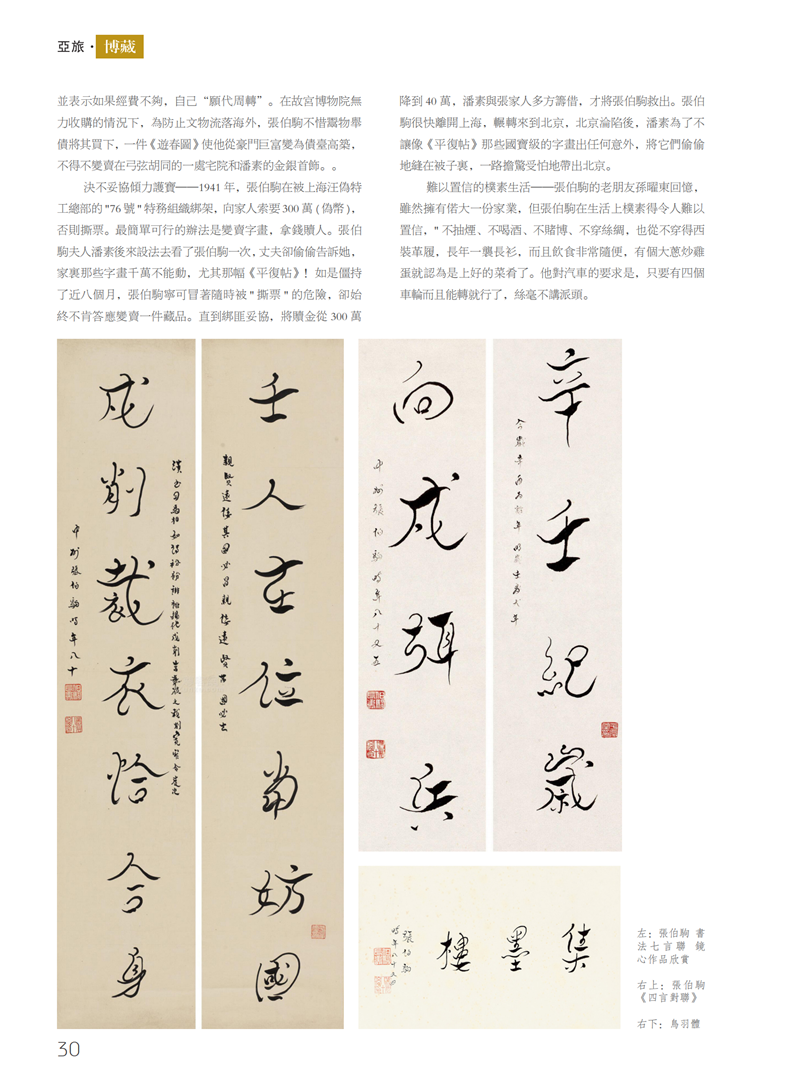 亞旅·博藏
並表示如果經費不夠，自己“願代周轉”。在故宮博物院無
力收購的情況下，為防止文物流落海外，張伯駒不惜鬻物舉
債將其買下，一件《遊春圖》使他從豪門巨富變為債臺高築，
不得不變賣在弓弦胡同的一處宅院和潘素的金銀首飾。。
決不妥協傾力護寶——1941 年，張伯駒在被上海汪偽特
工總部的"76 號"特務組織綁架，向家人索要 300 萬 ( 偽幣 )，
否則撕票。最簡單可行的辦法是變賣字畫，拿錢贖人。張伯
駒夫人潘素後來設法去看了張伯駒一次，丈夫卻偷偷告訴她，
家裏那些字畫千萬不能動，尤其那幅《平復帖》！如是僵持
了近八個月，張伯駒寧可冒著隨時被"撕票"的危險，卻始
終不肯答應變賣一件藏品。直到綁匪妥協，將贖金從 300 萬
降到 40 萬，潘素與張家人多方籌借，才將張伯駒救出。張伯
駒很快離開上海，輾轉來到北京，北京淪陷後，潘素為了不
讓像《平復帖》那些國寶級的字畫出任何意外，將它們偷偷
地縫在被子裏，一路擔驚受怕地帶出北京。
難以置信的樸素生活——張伯駒的老朋友孫曜東回憶，
雖然擁有偌大一份家業，但張伯駒在生活上樸素得令人難以
置信，" 不抽煙、不喝酒、不賭博、不穿絲綢，也從不穿得西
裝革履，長年一襲長衫，而且飲食非常隨便，有個大蔥炒雞
蛋就認為是上好的菜肴了。他對汽車的要求是，只要有四個
車輪而且能轉就行了，絲毫不講派頭。
壬人在位當妨國
親賢遠佞其國必昌親佞遠賢
戍削裁衣恰合身
中州張伯駒時年八十
辛壬紀歲
向戍弭兵
中州張伯駒時年八十又五
集墨樓
張伯駒
時年八十又四
左：張伯駒 書
法七言聯 鏡
心作品欣賞
右上：張伯駒
《四言對聯》
右下：鳥羽體
30